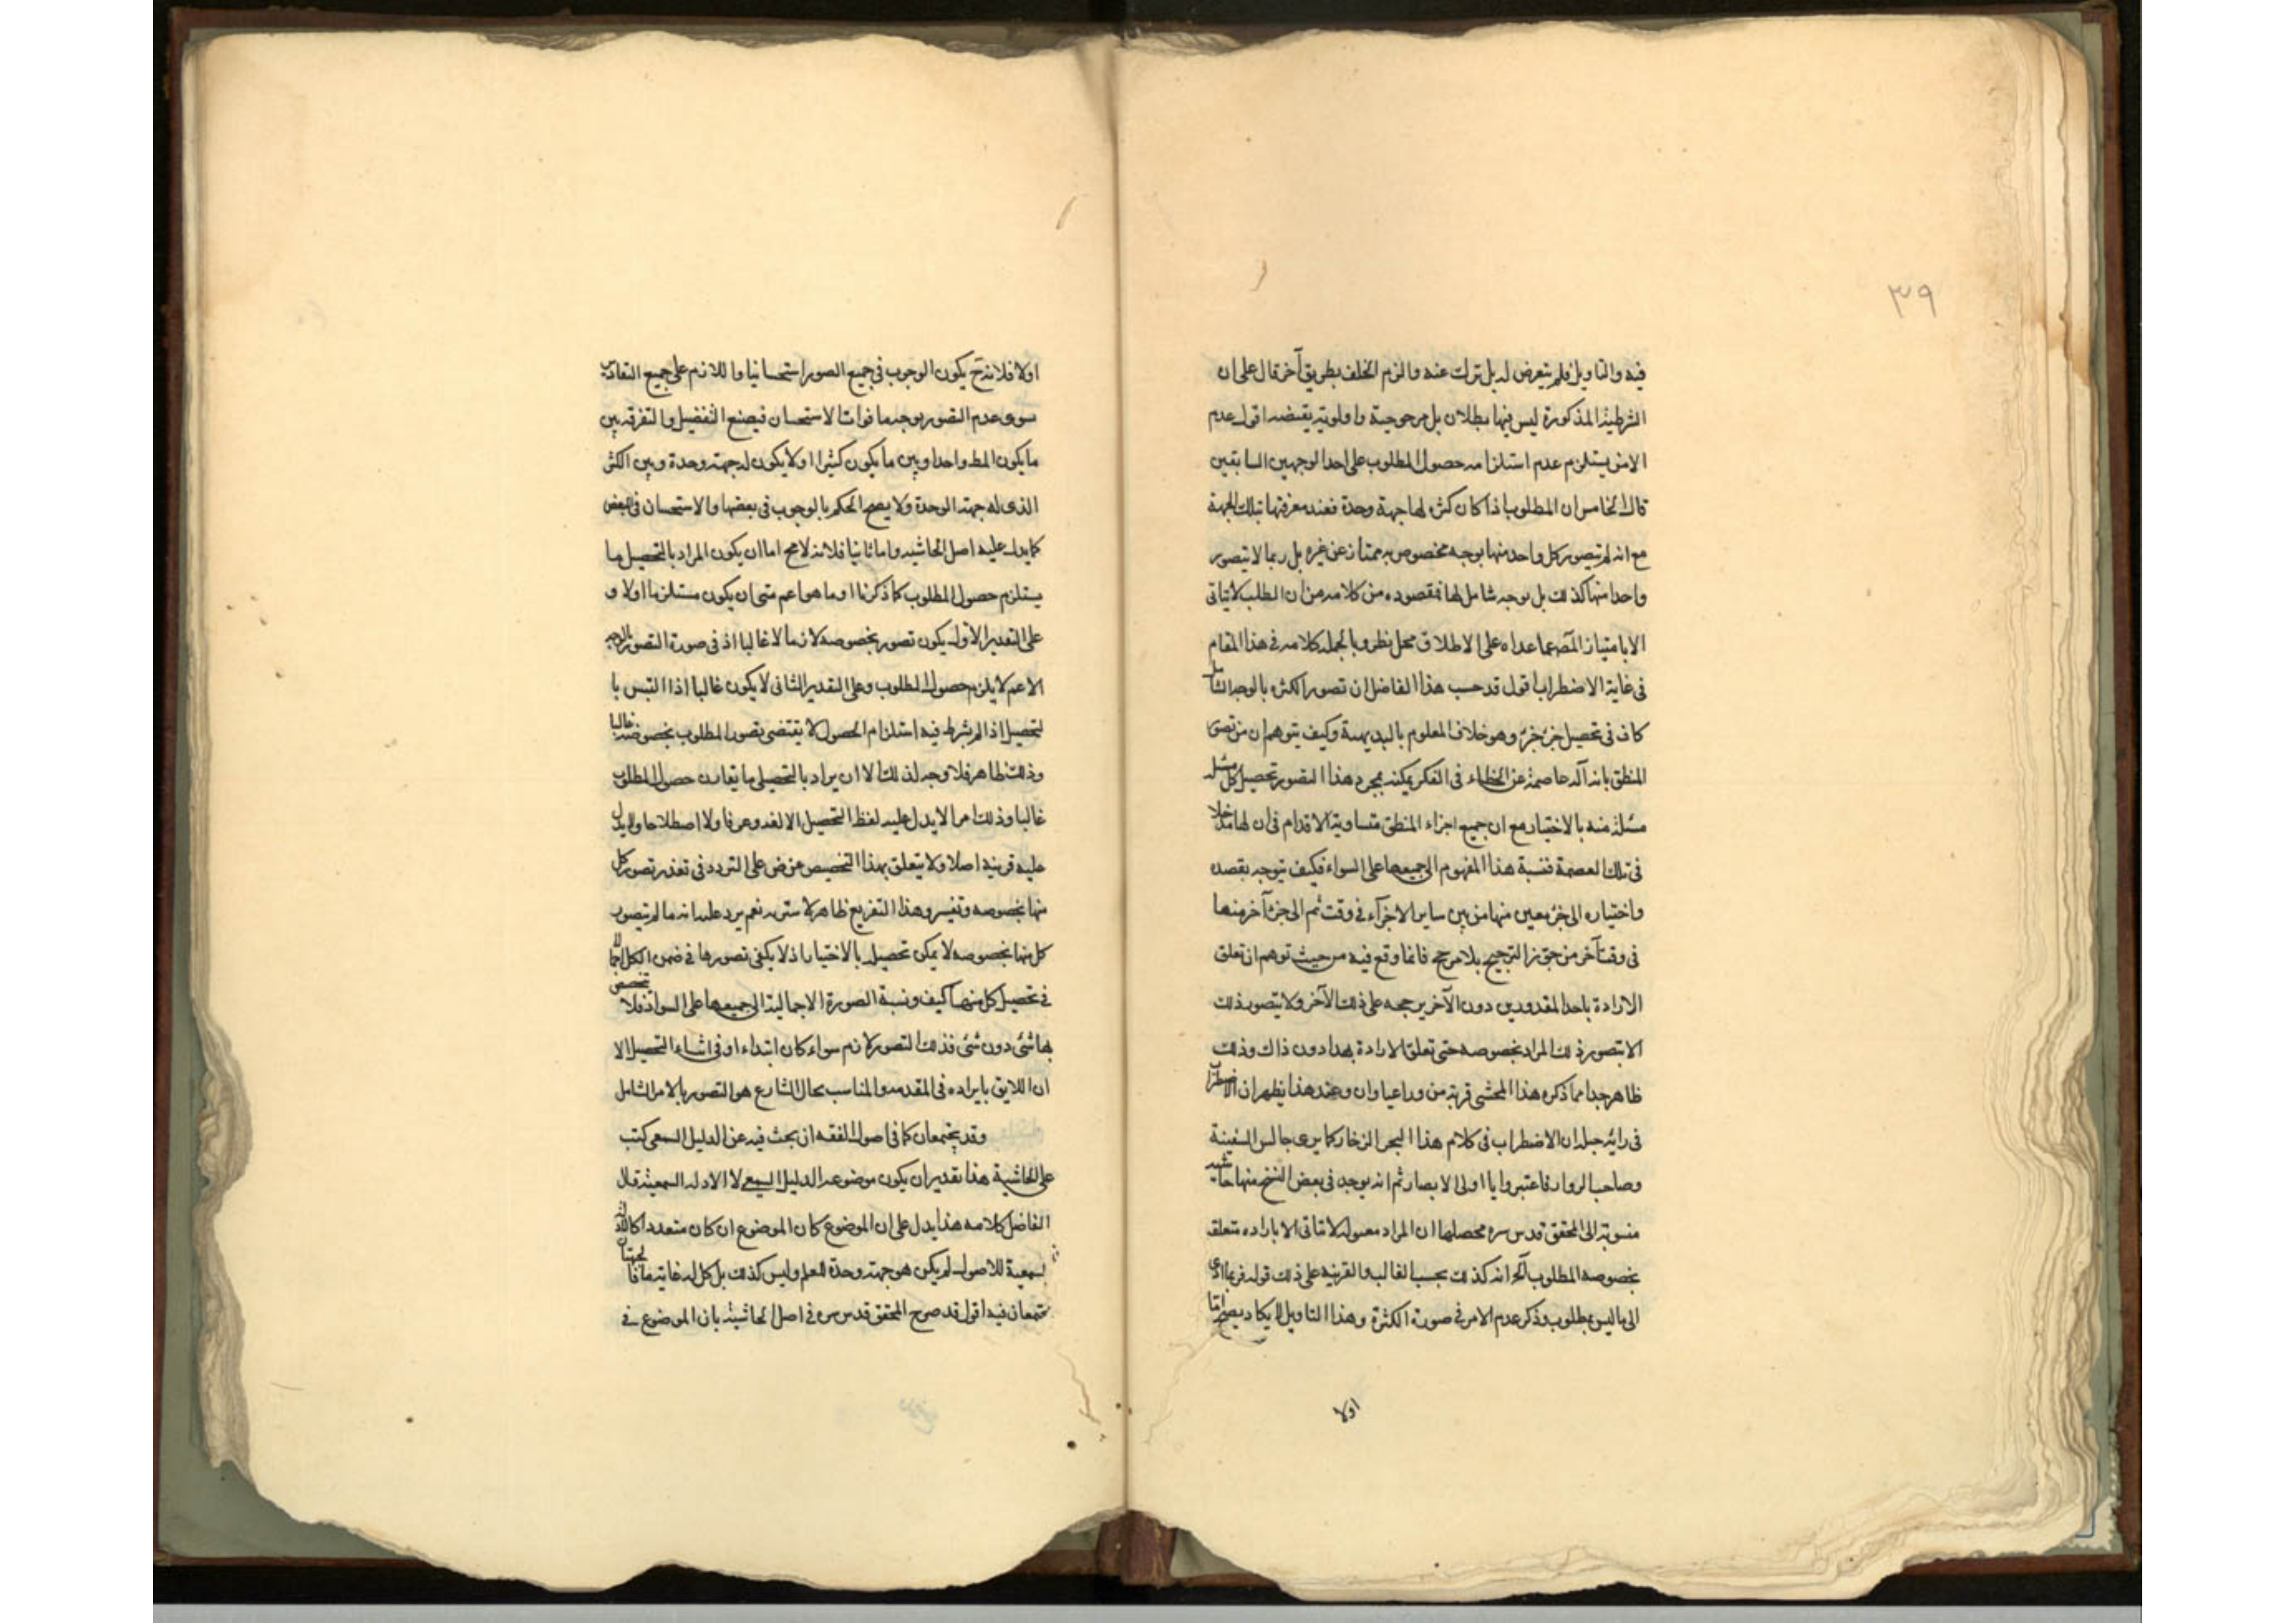 ٣٩
فيه والتاويل فلم يتعرض له بل ترك عنه والزم الخلف بطريق آخر قال على ان
الشرطية المذكورة ليس فيها بطلان بل مرجوحية واولوية يقتضه اقول عدم
الامن يستلزم عدم استلزامه حصول المطلوب على احد الوجهين السابقين
قال الخامس ان المطلوب اذا كان كثرة لها جهة وحدة فعند معرفتها بتلك الجهة
مع انه لم يتصور كل واحد منها بوجه مخصوص به ممتاز عن غيره بل ربما لا يتصور
واحد منها كذلك بل بوجه شامل لها فمقصوده من كلامه من ان الطلب لا يتاتى
الا بامتياز عما عداه على الاطلاق محل نظر وبالجمله كلامه في هذا المقام
في غاية الاضطراب اقول قد حسب هذا الفاضل ان تصور الكثرة بالوجه الشامل
كاف في تحصيل جزء جزء وهو خلاف المعلوم بالبديهة وكيف يتوهم ان من تصور
المنطق بانه آلة عاصمة عن الخطاء في الفكر يمكنه بمجرد هذا التصور تحصيل كل مسئلة
مسئلة منه بالاختيار مع ان جميع اجزاء المنطق متساوية الاقدام في ان لها مدخلا
في تلك العصمة فنسبة هذا المفهوم الى جميعها على السواء فكيف يتوجه بقصده
واختياره الى جزء معين منها من بين ساير الاجزآء في وقت ثم الى جزء آخر منها
في وقت آخر من جوز الترجيح بلا مرجح فانما وقع فيه من حيث توهم ان تعلق
الارادة باحد المقدورين دون الآخر يرجحه على ذلك الآخر ولا يتصور ذلك
الا بتصور ذلك المراد بخصوصه حتى تعلق الارادة بهذا دون ذاك وذلك
ظاهر جدا مما ذكره هذا المحشى قربة من وعند هذا يظهر ان الاضطراب
في رايه جبل ان الاضطراب في كلام هذا البحر الزخار كما يرى جالس السفينة
وصاحب الدوار فاعتبروا يا اولى الابصار ثم انه يوجد في بعض النسخ منها حاشية
منسوبة الى المحقق قدس سره محصلها ان المراد معموله لا تتاتى الا بارادة متعلقة
بخصوصه المطلوب انه كذلك بحسب الغالب والقرينة على ذلك قوله فربما ادى
الى ما ليس بمطلوب وذكر عدم الامر في صورة الكثرة وهذا التاويل لا يكاد يصح اما
اولا
اولا فلانه ح يكون الوجوب في جميع الصور استحسانيا واللازم على جميع التقادير
سوى عدم التصور بوجه ما فوات الاستحسان فيصنع التفضيل والتفرقه بين
ما يكون المط واحدا وبين ما يكون كثيرا اولا يكون له جهة وحدة وبين الكثير
الذى له جهة الوحدة ولا يصح الحكم بالوجوب في بعضها والاستحسان في البعض
كما يدل عليه اصل الحاشيه واما ثانيا فلانه لا مح اما ان يكون المراد بالتحصيل ما
يستلزم حصول المطلوب كما ذكرنا او ما هو اعم من ان يكون مستلزما اولا و
على التقدير الاول يكون تصور بخصوصه لازما لا غالبا اذ في صورة التصور بالوجه
الاعم لا يلزم حصول المطلوب وعلى التقدير الثانى لا يكون غالبا اذا التبس با
لتحصيل اذ لم يشرط فيه استلزام الحصول لا يقتضى تصور المطلوب بخصوصه غالبا
وذلك ظاهر فلا وجه لذلك الا ان يراد بالتحصيل ما يقارن حصول المطلوب
غالبا وذلك امر لا يدل عليه لفظ التحصيل الا لغه وعرفا ولا اصطلاحا ولا يدل
عليه قرينة اصلا ولا يتعلق بهذا التخصيص غرض على التردد في تعذر تصور كل
منها بخصوصه وتعسر وهذا التفريع ظاهر لا سترة نعم يرد عليه انه ما لم يتصور
كل منها بخصوصه لا يمكن تحصيله بالاختيار اذ لا يكفى تصورها في ضمن الكل اجمالا
في تحصيل كل منها كيف ونسبة الصورة الاجمالية الى جميعها على السواء فلا تخصص
بها شئ دون شئ فذلك التصور لازم سواء كان ابتداء او في اثناء التحصيل الا
ان اللايق بايراده في المقدمه والمناسب بحال الشارع هو التصور بالامر الشامل
وقد يجتمعان كما في اصول الفقه ان بحث فيه عن الدليل السمعى كتب
على الحاشية هذا تقدير ان يكون موضوعه الدليل السمعي لا الادلة السمعية قال
الفاضل كلامه هذا يدل على ان الموضوع كان الموضوع ان كان متعددا كالادلة
السمعية للاصول لم يكن هو جهة وحدة العلم وليس كذلك بل كل له غاية ما فالجهتان
تجتمعان فيه اقول قد صرح المحقق قدس سره في اصل الحاشية بان الموضوع في